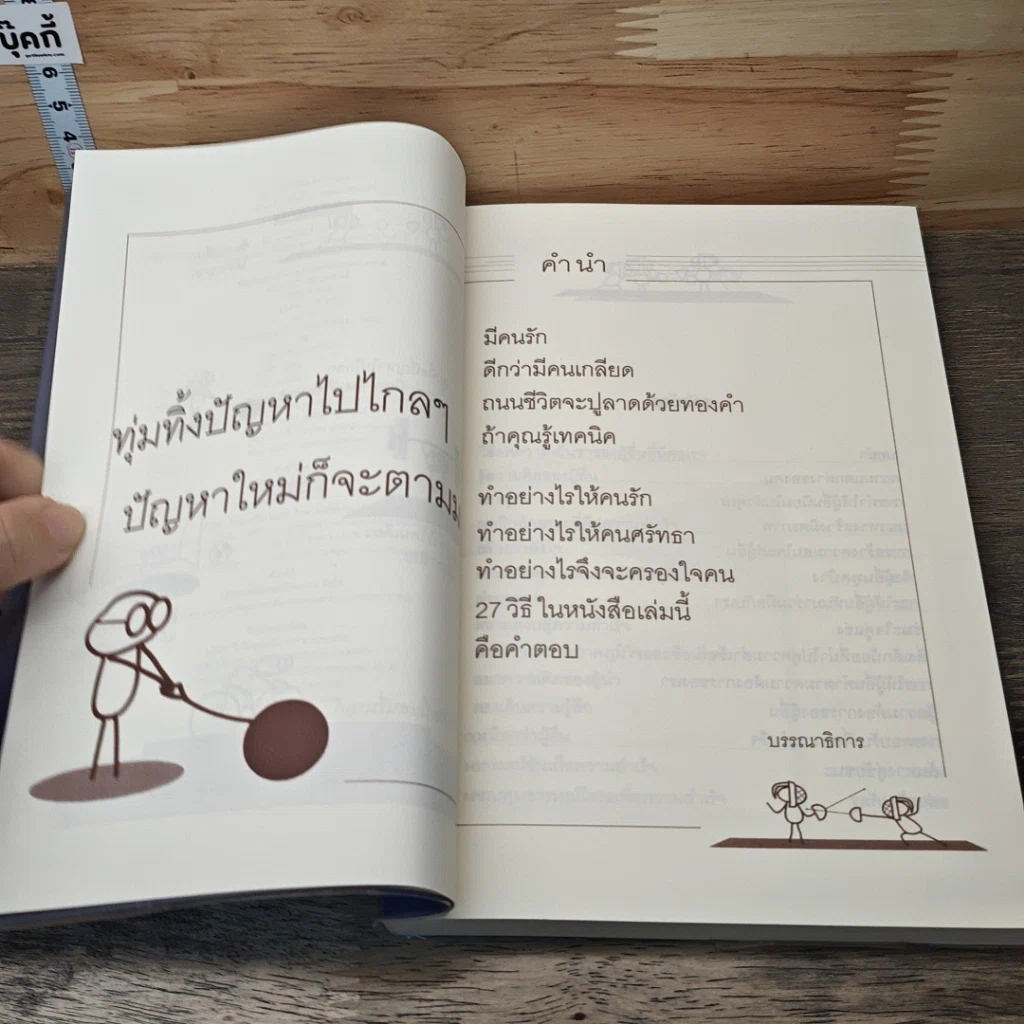 บุ๊คกี้
6
5
4
ทุ่มทิ้งปัญหาไปไกลๆ
ปัญหาใหม่ก็จะตาม
คำนำ
มีคนรัก
ดีกว่ามีคนเกลียด
ถนนชีวิตจะปูลาดด้วยทองคำ
ถ้าคุณรู้เทคนิค
ทำอย่างไรให้คนรัก
ทำอย่างไรให้คนศรัทธา
ทำอย่างไรจึงจะครองใจคน
27 วิธี ในหนังสือเล่มนี้
คือคำตอบ
บรรณาธิการ